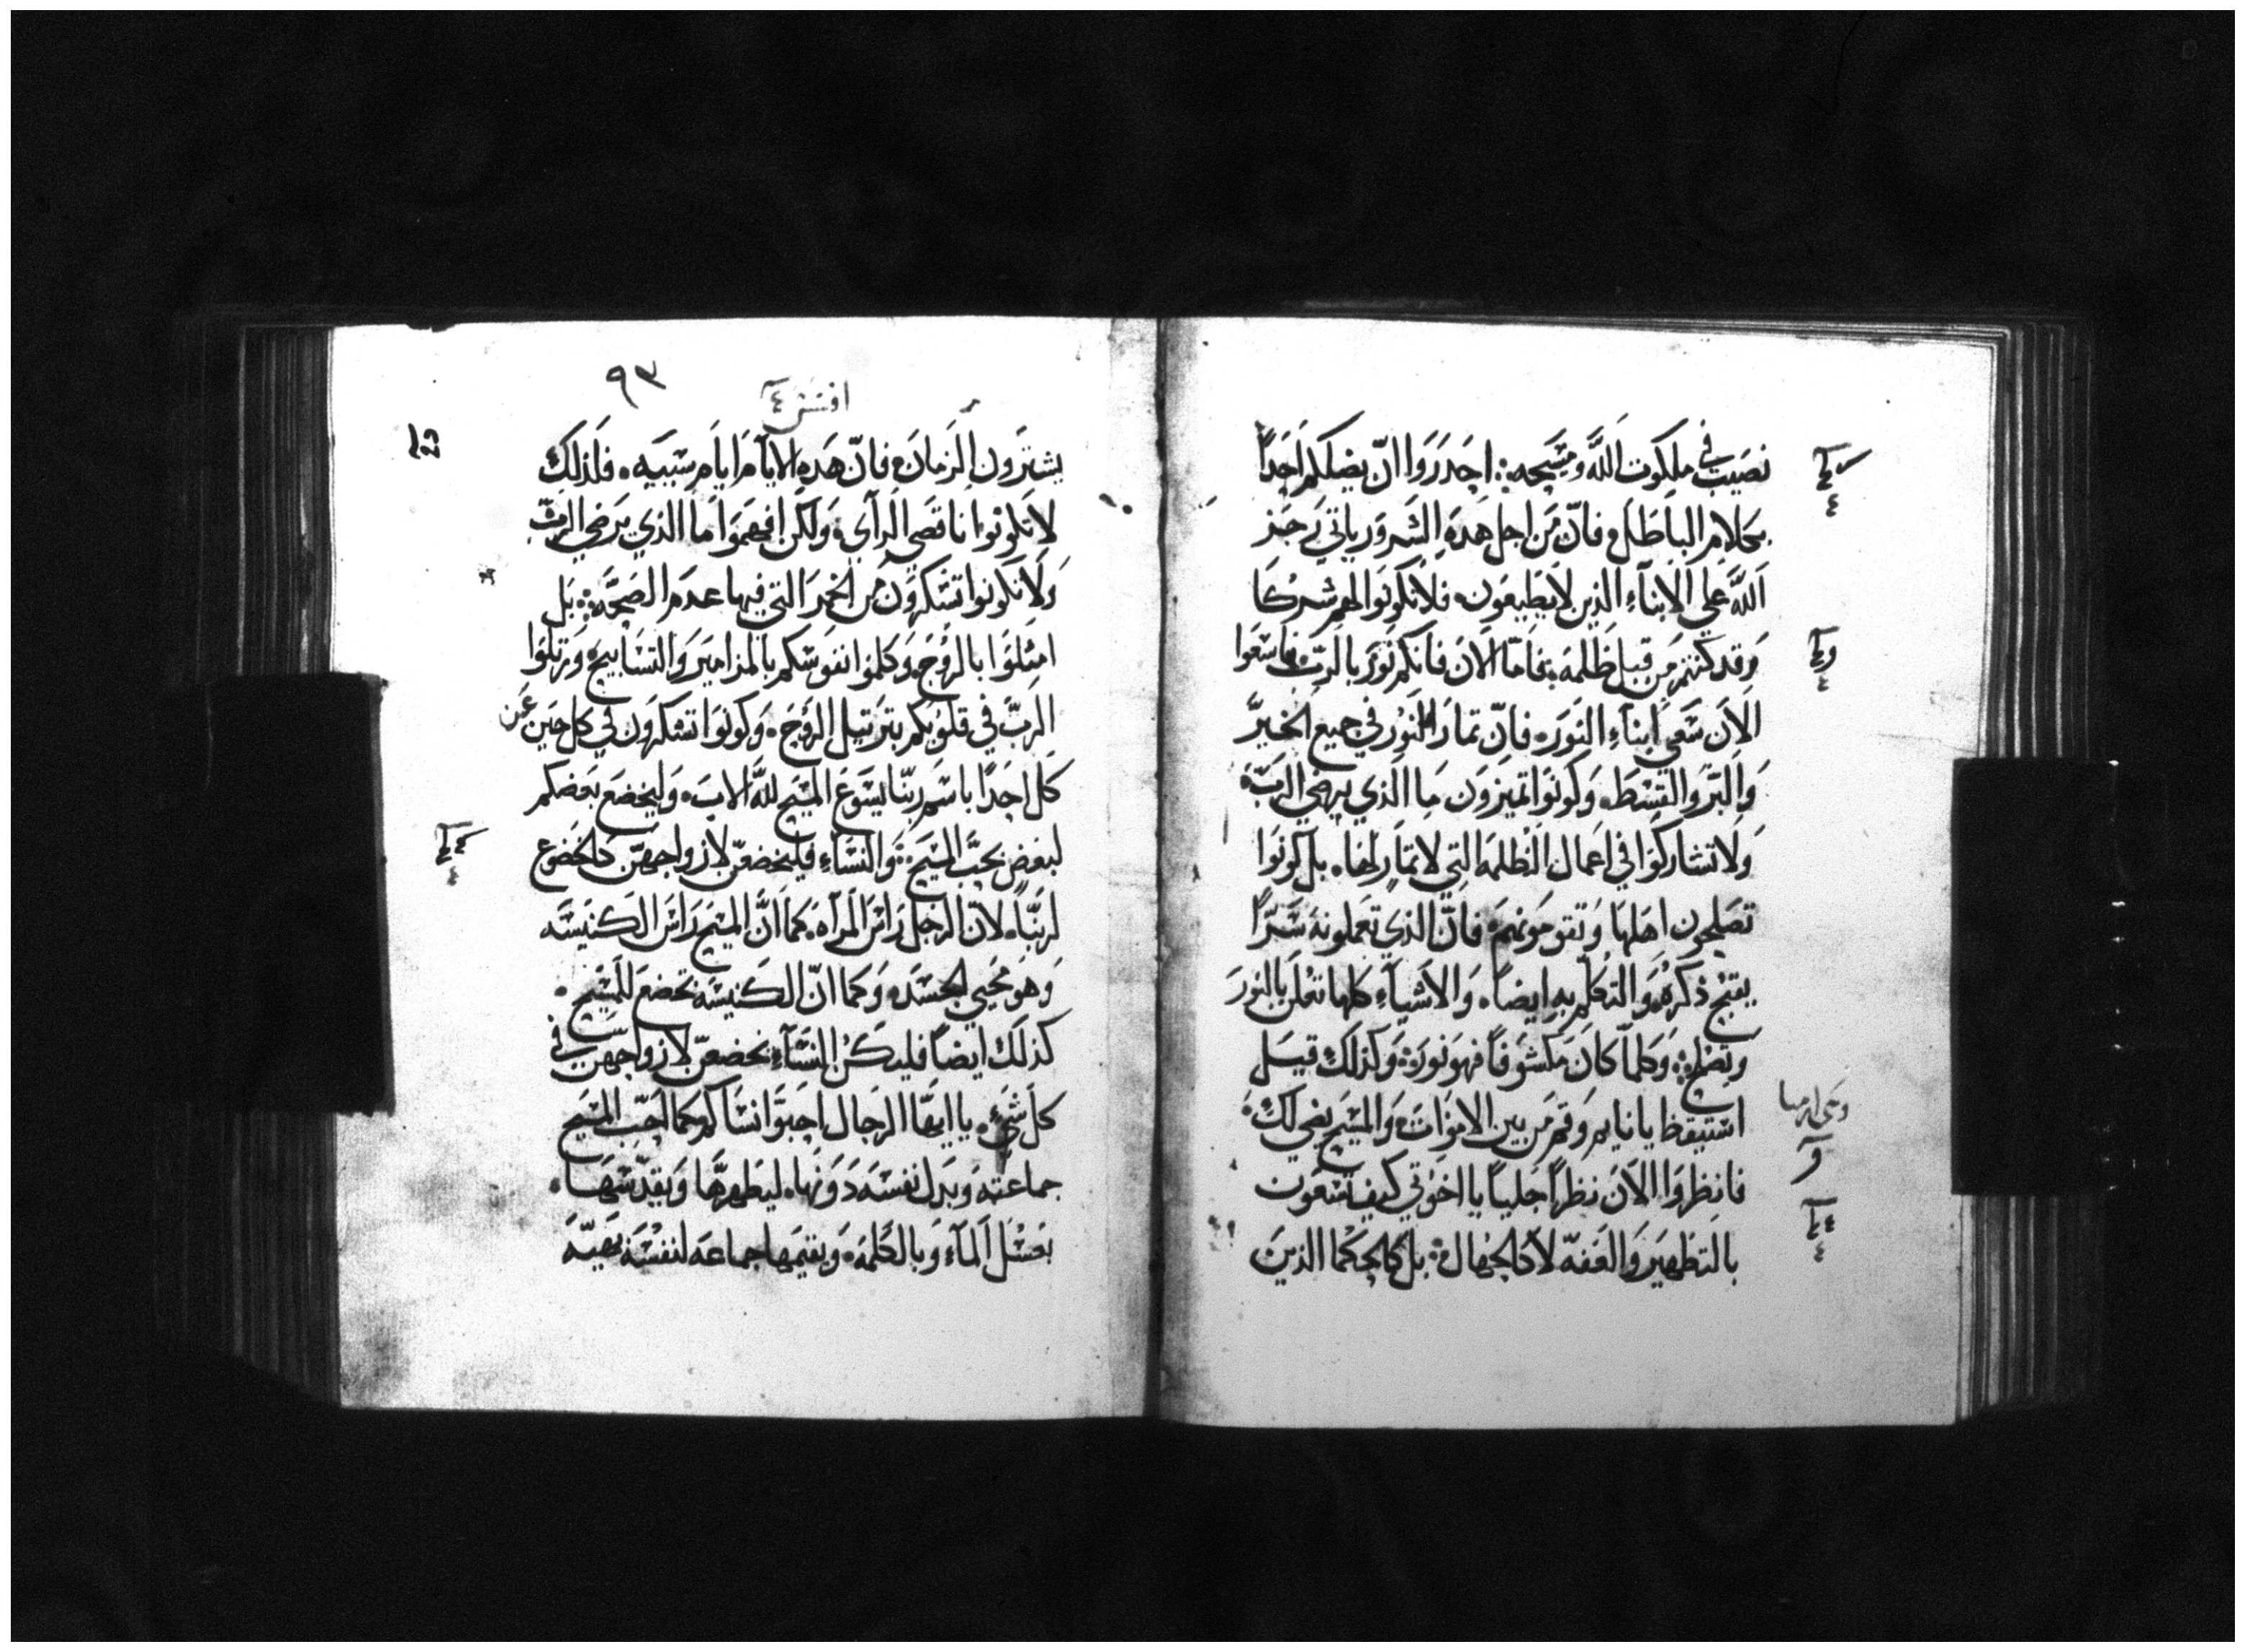 نصيب في ملكوت الله ومسيحه: احدروا ان يضلكم احدًا
بكلام الباطل فانّ من اجل هده الشرور ياتي رجز
الله علي الابناء الذين لا يطيعون فلا تكونوا لهم شركا
وقد كنتم من قبل ظلمه فامّا الان فانكم نور بالرب فاسعوا
الان سعي ابناء النور فانّ تمار النور في جميع الخير
والبر والقسط وكونوا تميزون ما الذي يرضي الرب
ولا تشاركوا في اعمال الظلمه التي لا تمار لها بل كونوا
تصلحون اهلها وتقومونهم فانّ الذي تعملونه سرًا
يقبح ذكره والتكلم به ايضًا والاشياء كلها تعلن بالنور
وتصلح: وكلمّا كان مكشوفًا فهو نور وكذلك قيل
استيقظ يا نايم وقم من بين الاموات والمسيح يضي لك
فانظروا الان نظرًا جليًا يا اخوتي كيف تسعون
بالتطهير والعفه لا كالجهال: بل كالحكما الذين
٩٣
افسس ٤
يشترون الزمان فانّ هده الايام ايام سييه فلذلك
لا تكونوا ناقصي الراي ولكن افهموا ما الذي يرضي الرب
ولا تكونوا تسكرون من الخمر التي فيها عدم الصحه: بل
امتلوا بالروح وكلموا نفوسكم بالمزامير والتسابيح ورتلوا
الربّ في قلوبكم بترتيل الروح وكونوا تشكرون في كل حين عن
كل احدًا باسم ربنا يسوع المسيح لله الاب وليخضع بعضكم
لبعض بحبّ المسيح: والنساء فليخضعنّ لازواجهنّ كالخضوع
لربنّا لانّ الرجل راس المراه كما انّ المسيح راس الكنيسه
وهو محيي الجسد وكما انّ الكنيسه تخضع للمسيح
كذلك ايضًا فليكن النساء يخضعنّ لازواجهن في
كل شيء يا ايها الرجال احبّوا نساكم كما احبّ المسيح
جماعته وبدل نفسه دونها ليطهرها ويقدّسها
بغسل الماء وبالكلمه ويقيمها جماعه لنفسه بهيّه